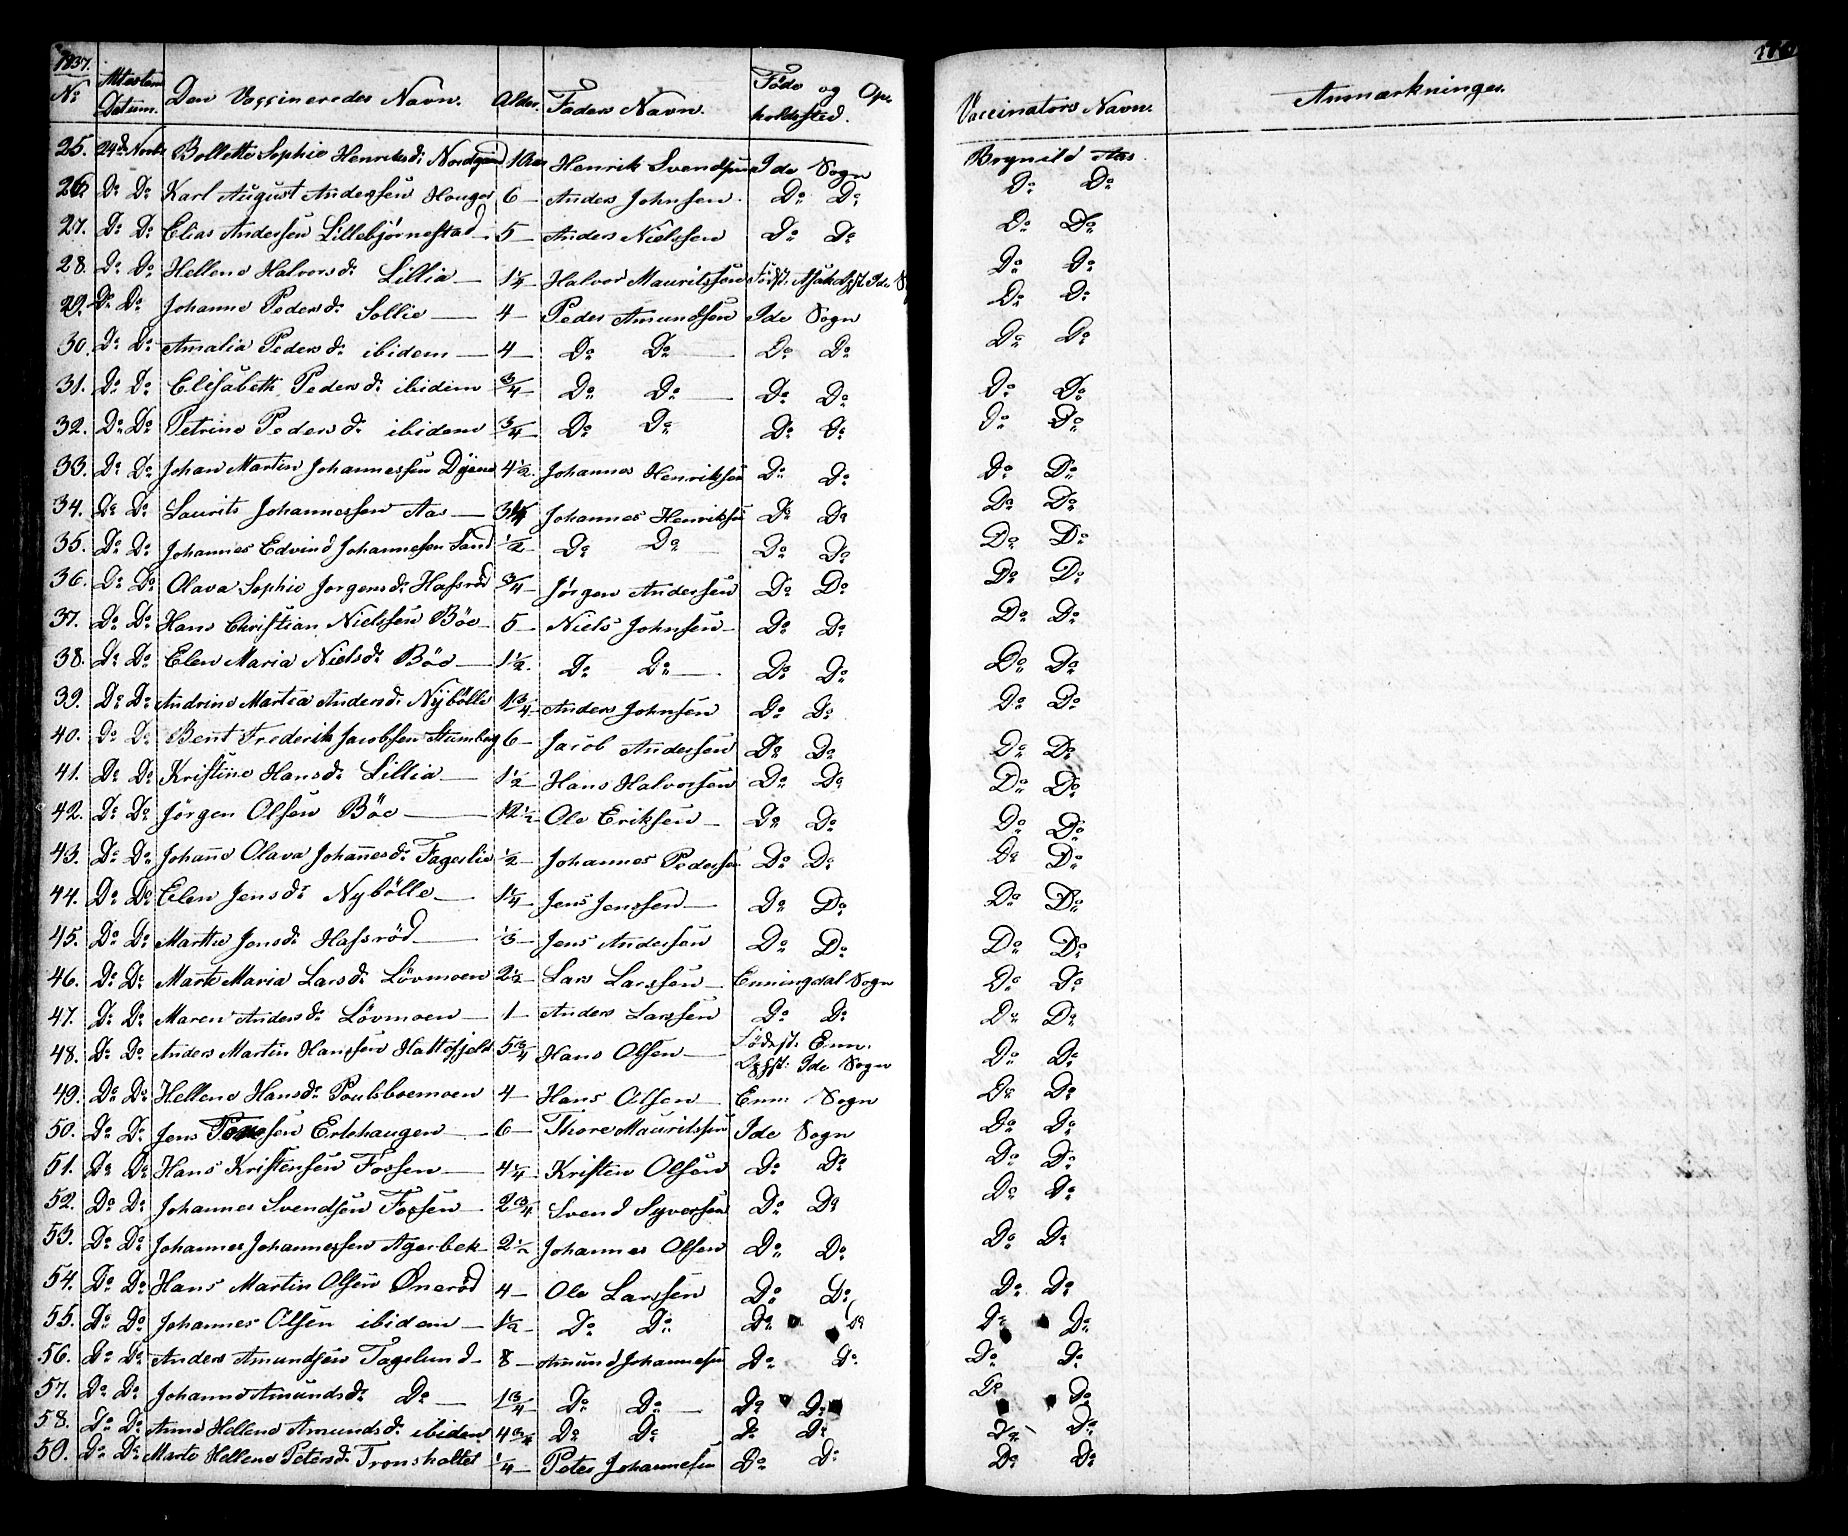 1837.
No Attestens Datum. Den Vaccineredes Navn. Alder. Faders Navn. Føde og Opholdssted. Vaccinatørs Navn. Anmærkninger.
25. 24de Novbr Bollette Sophie Henriksdr Nordgaard 10 Aar Henrik Svendsen Ide Sogn Brynild Aas
26 Do Do Karl August Anderssen Houger 6 — Anders Johnsen Do Do Do Do
27. Do Do Elias Anderssen Lillebjørnestad 5 — Anders Nielssen Do Do Do Do
28. Do Do Hellene Halvorsdr Lillia — 1 1/4 — Halvor Mauritssøn Fødst. Opst. Ide Do Do
29. Do Do Johanne Pedersdr Sollie — 4 — Peder Amundsen Ide Sogn Do Do
30. Do Do Amalia Pedersdr ibidem — 4 — Do Do — Do Do Do Do
31. Do Do Elisabeth Pedersdr ibidem 3/4 — Do Do — Do Do Do Do
32. Do Do Petrine Pedersdr ibidem 3/4 — Do Do Do Do Do Do
33. Do Do Johan Martin Johannessen 4 1/2. Johannes Henriksen Do Do Do Do
34. Do Do Laurits Johannessen Aas — 3 1/4 Johannes Henriksen Do Do Do Do
35. Do Do Johannes Edvind Johannesen Sand 1/2 — Do Do — Do Do Do Do
36. Do Do Olava Sophie Jørgensdr Hafsrød 3/4 — Jørgen Andersen Do Do Do Do
37. Do Do Hans Christian Nielssen Böe — 5 — Niels Johnsen — Do Do Do Do
38. Do Do Elen Maria Nielsdr Böe — 1 1/2. Do Do — Do Do Do Do
39. Do Do Andrine Martea Andersdr Nÿbölle 1 3/4 — Anders Johnsen Do Do Do Do
40. Do Do Bent Frederik Jacobsen Stumberg 6 — Jacob Andersen Do Do Do Do
41. Do Do Kristine Hansdr Lillia — 1 1/2 — Hans Halvorsen Do Do Do Do
42. Do Do Jörgen Olsen Böe — 12 1/2 — Ole Eriksen — Do Do Do Do
43. Do Do Johanne Olava Johannesdr Fagerlie 1/2 — Johannes Pedersen Do Do Do Do
44. Do Do Elen Jensdr Nybölle — 1 1/4 — Jens Jenssen — Do Do Do Do
45. Do Do Marthe Jensdr Hafsröd — 1/3 — Jens Andersen Do Do Do Do
46. Do Do Marte Maria Larsdr Lövmoen 2 1/2 — Lars Larssen — Enningdal Sogn Do Do
47. Do Do Maren Andersdr Lövmoen — 1 — Anders Larssen Do Do Do Do
48. Do Do Anders Martin Hanssen Hattefjeld 5 3/4 Hans Olsen — Födest. Enn.
Opst. Ide Sogn Do Do
49. Do Do Hellene Hansdr Poulsboemoen 4 — Hans Olsen — Enn. Sogn Do Do
50. Do Do Jens Erlehaugen — 6 — Thore Mauritssen Ide Sogn Do Do
51. Do Do Hans Kristensen Fossen — 4 1/4 — Kristen Olsen Do Do Do Do
52. Do Do Johannes Svendsen Fossen — 2 3/4 Svend Syversen Do Do Do Do
53. Do Do Johannes Johannessen Agerbek — 2 1/2 Johannes Olsen Do Do Do Do
54. Do Do Hans Martin Olsen Ønerød 4 — Ole Larssen Do Do Do Do
55. Do Do Johannes Olsen ibidem — 1 1/2 — Do Do Do Do Do Do
56. Do Do Anders Amundsen Fagelund — 8 — Amund Johannesen Do Do Do Do
57. Do Do Johanne Amundsdr Do — 1 3/4 — Do Do — Do Do Do Do
58. Do Do Anne Hellene Amundsdr ibidem 4 3/4 Do Do Do Do Do Do
59. Do Do Marte Hellene Petersdr Tronsholtet 1/4 — Peter Johannesen Do Do Do Do